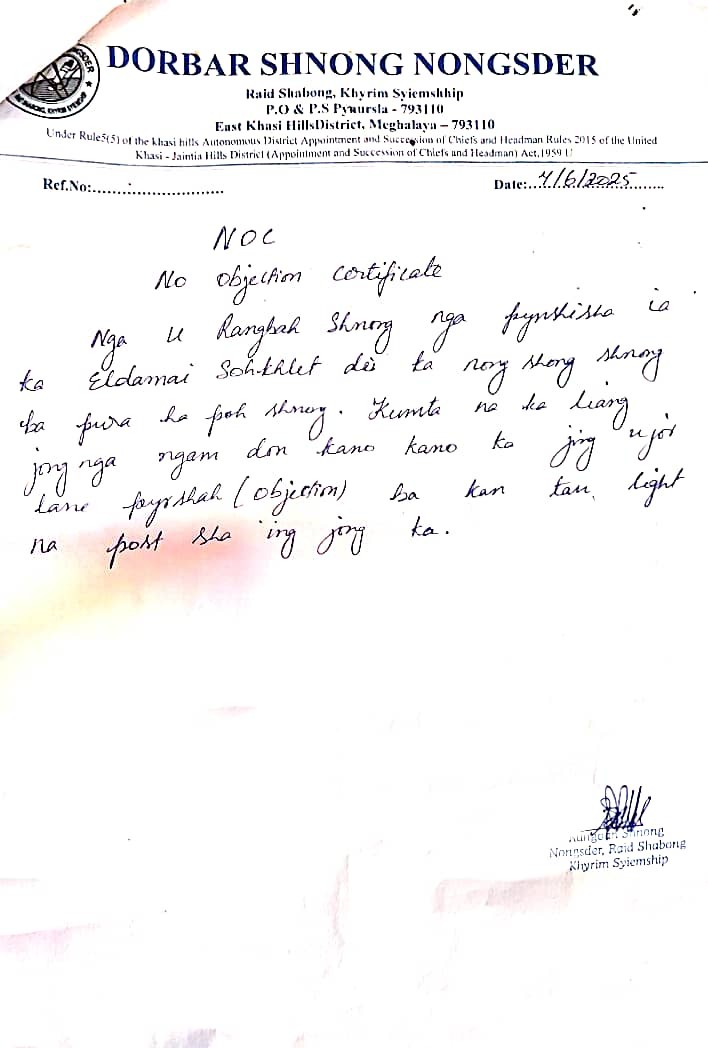 DORBAR SHNONG NONGSDER
Raid Shabong, Khyrim Syiemshhip
P.O & P.S Pynursla - 793110
East Khasi HillsDistrict, Meghalaya – 793110
Under Rule5(5) of the khasi hills Autonomous District Appointment and Succession of Chiefs and Headman Rules 2015 of the United
Khasi - Jaintia Hills District (Appointment and Succession of Chiefs and Headman) Act,1959 U
Ref.No:............................ Date:..4/6/2025........
NOC
No Objection Certificate
Nga u Rangbah Shnong nga pynshisha ia
ka Eldamai Sohkhlet dei ka nong shong shnong
ba pura ha poh shnong. Kumta na ka liang
jong nga ngam don kano kano ka jing ujor
lane pyrshah (Objection) ba kan tan light
na post sha ïng jong ka.
Rangbah Shnong
Nongsder, Raid Shabong
Khyrim Syiemship